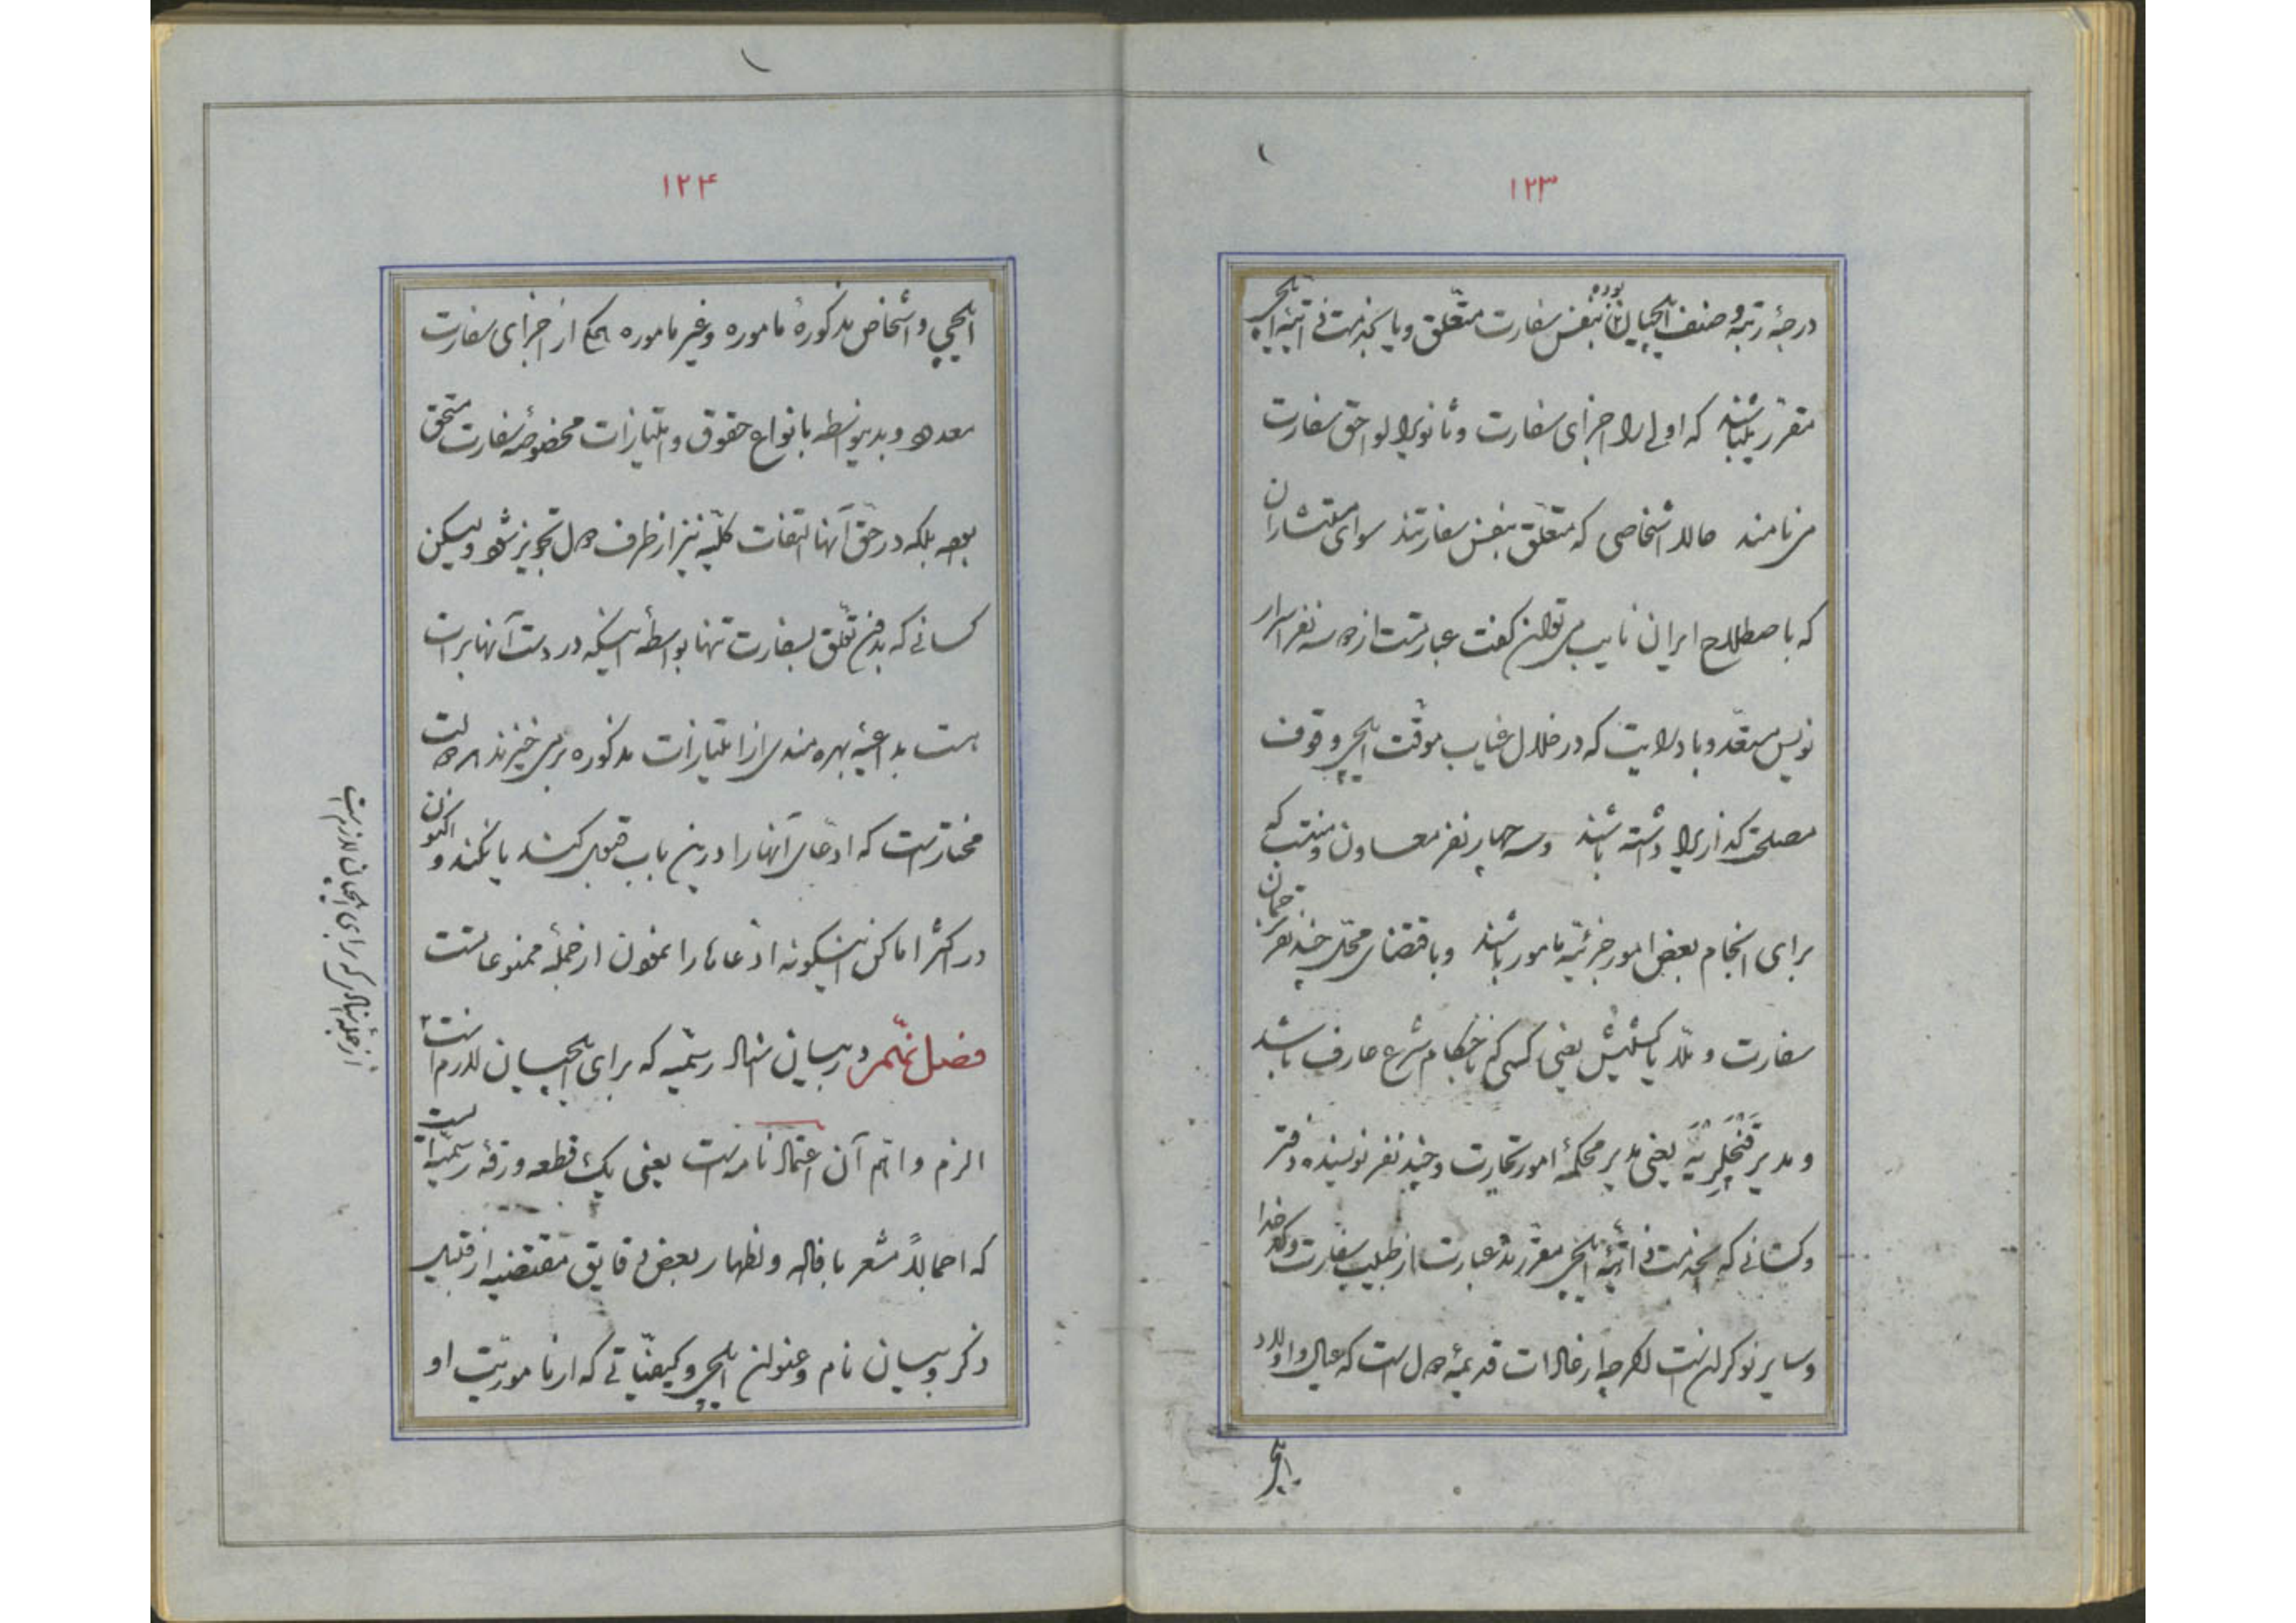 ۱۲۳
درجهٔ رتبه و صنف ایلچیان بوده بنفس سفارت متعلق و یا بخدمت ذاتیّه ایلچی
مقرر میباشند که اولی را اجزای سفارت و ثانوی را لواحق سفارت
می نامند حالا اشخاصی که متعلق بنفس سفارتند سوای مستشاران
که باصطلاح ایران نایب می توان گفت عبارتست از دو سه نفر اسرار
نویس مستعد و با درایت که در خلال غیاب موقت ایلچی وقوف
مصلحت گذاری را داشته باشند و سه چهار نفر معاون و منتسب که
برای انجام بعض امور جزئیّه مامور باشند و باقتضای محل چند نفر ترجمان
سفارت و ملّا یا کشیش یعنی کسی که باحکام شرع عارف باشد
و مدیر قنچلریه یعنی مدیر محکمهٔ امور تجارت و چند نفر نویسنده دفتر
و کسانی که بخدمت ذاتیّهٔ ایلچی مقررند عبارت از طبیب سفارت و کدخدا
و سایر نوکران است اگر چه از عادات قدیمهٔ دول است که عیال و اولاد
ایلچی
۱۲۴
ایلچی و اشخاص مذکورهٔ ماموره و غیر ماموره بحکم از اجزای سفارت
معدود و بدینواسطه بانواع حقوق و امتیازات مخصوصهٔ سفارت مستحق
بوده بلکه در حق آنها التفات کلیّه نیز از طرف دول تجویز شود ولیکن
کسانی که بدون تعلق بسفارت تنها بواسطه اینکه در دست آنها برات
هست بداعیهٔ بهره مندی از امتیازات مذکوره بر می خیزند دولت
مختار است که ادعای آنها را درین باب قبول کنند یا نکنند و اکنون
در اکثر اماکن اینگونه ادعاها را نمودن از جمله ممنوعاتست
فصل نهم در بیان اسناد رسمیّه که برای ایلچیان لازم است
الزم و اهم آن اعتماد نامه است یعنی یک قطعه ورقهٔ رسمیّه است
که اجمالاً مشعر بافاده و اظهار بعض دقایق مقتضیه از قبیل
ذکر و بیان نام و عنوان ایلچی و کیفیّاتی که از ماموریّت او
از جمله اسناد که برای ایلچیان لازم است